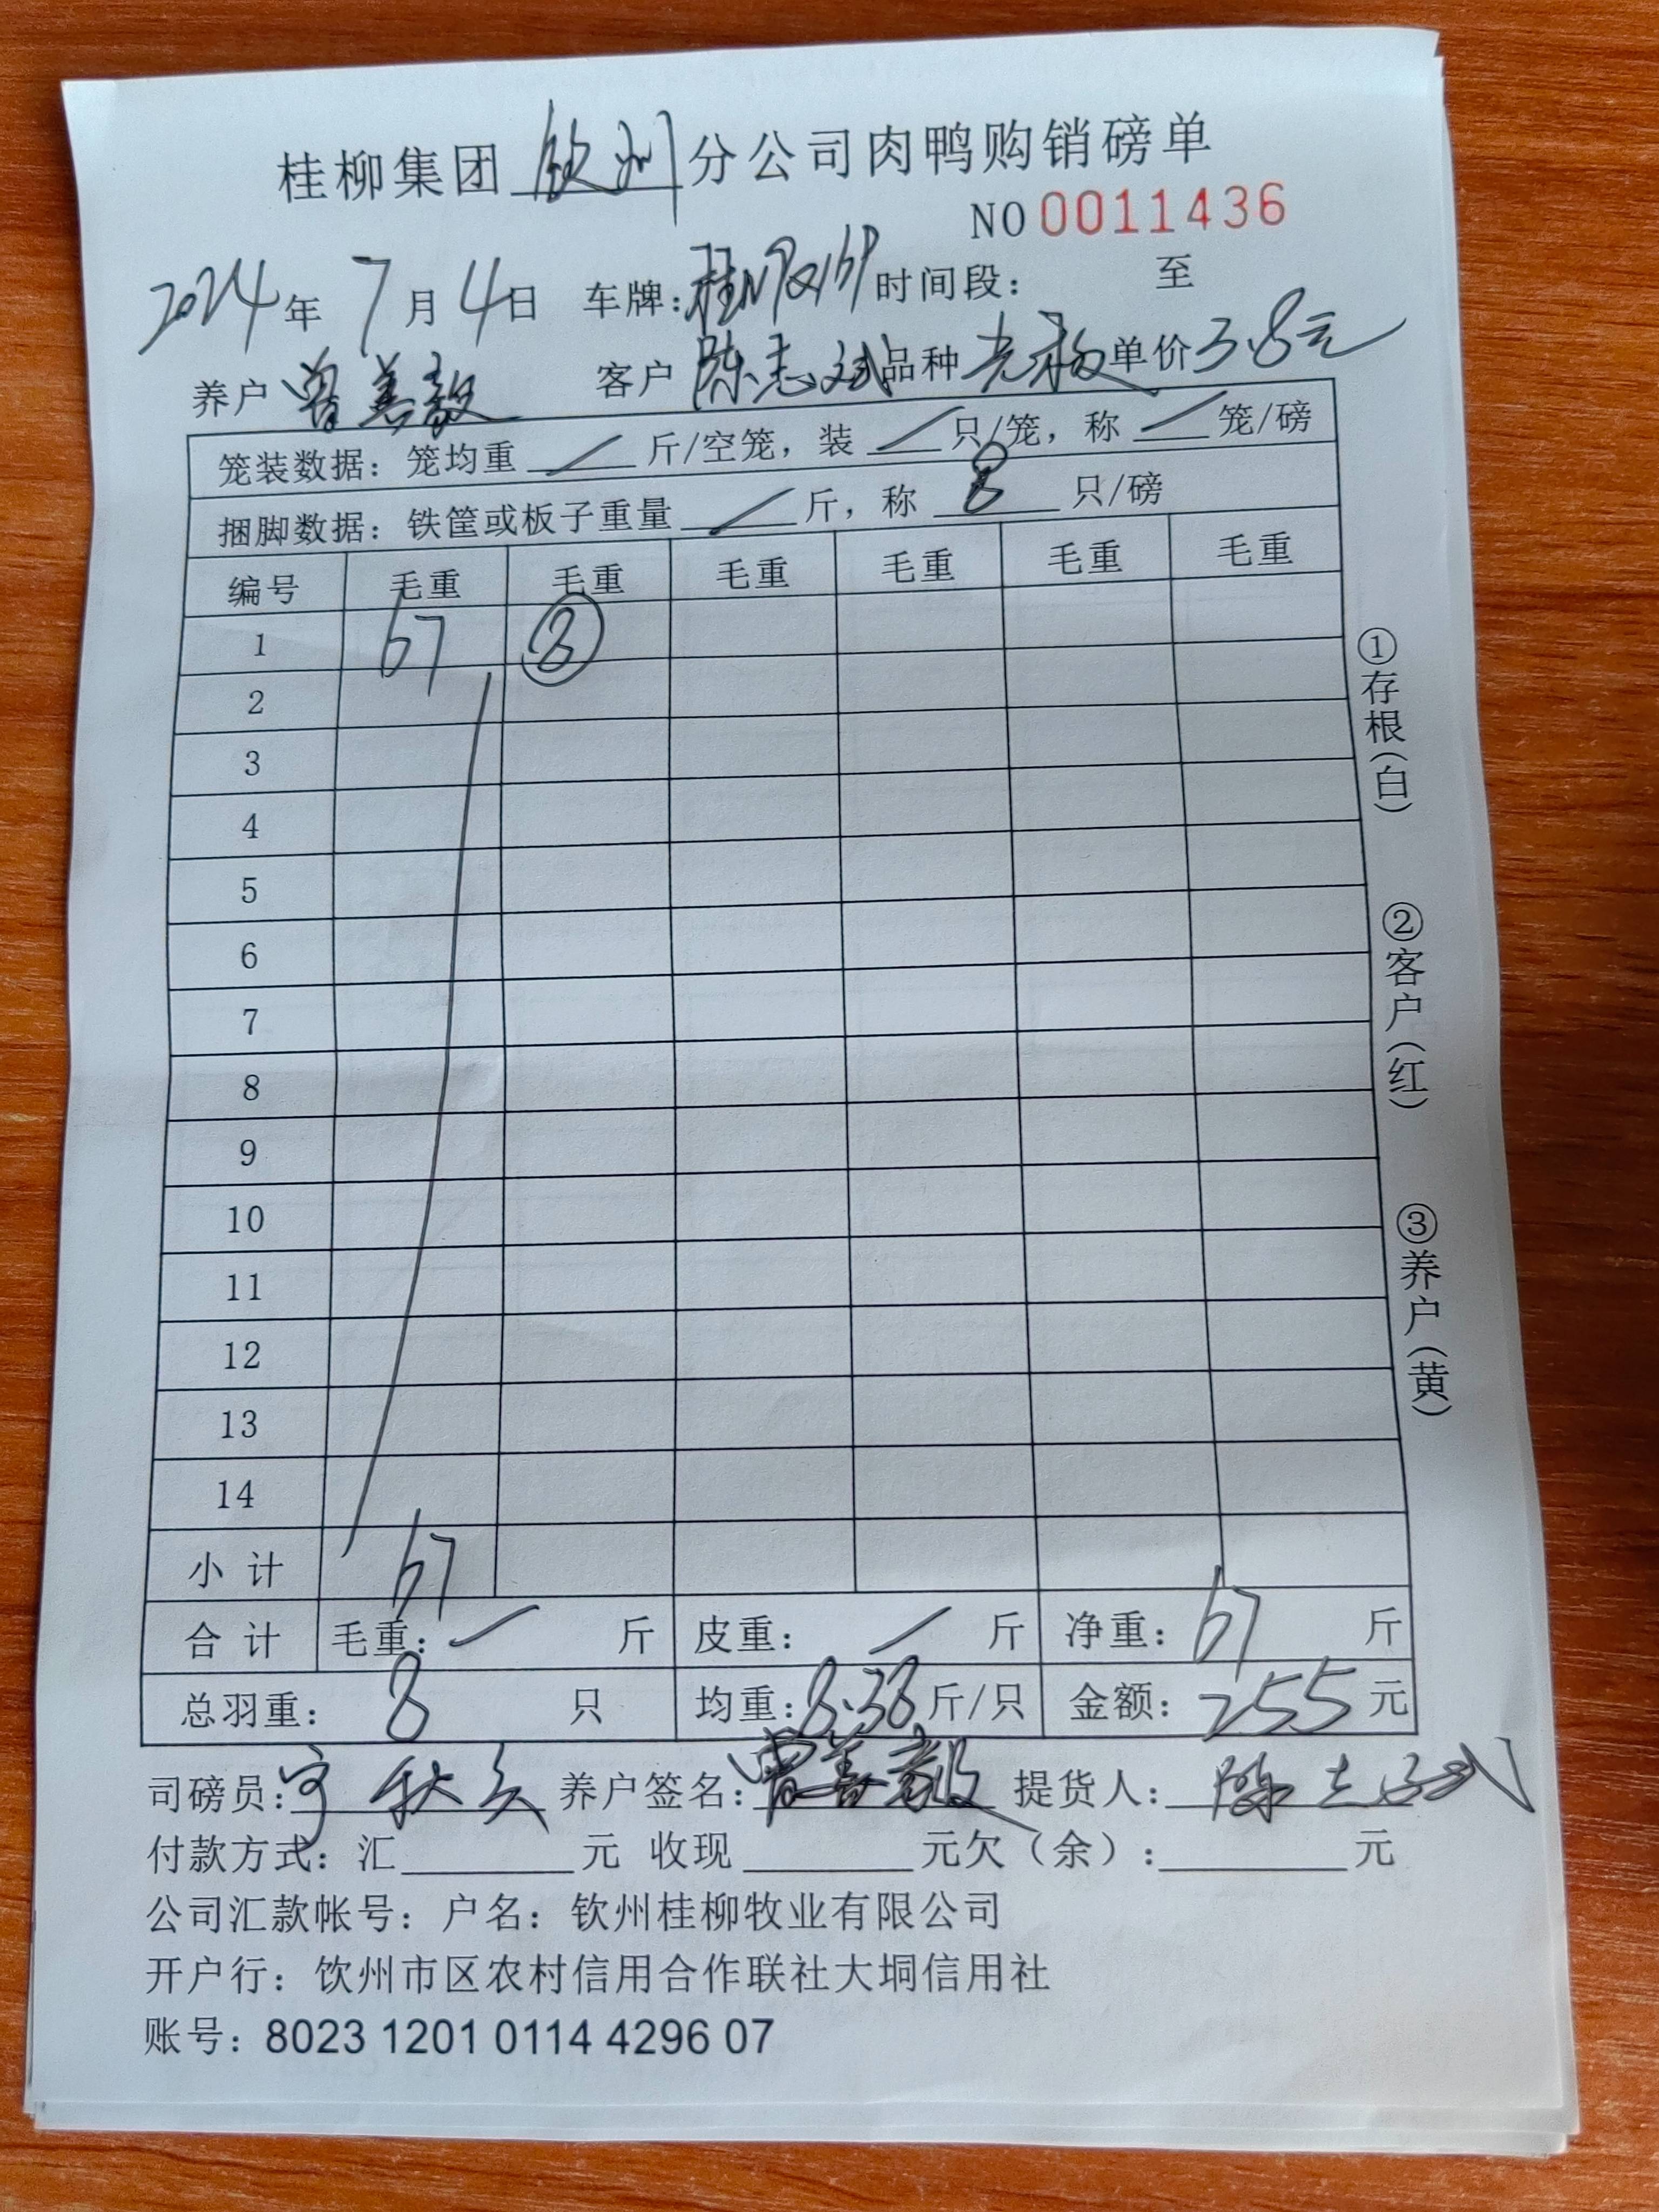 桂柳集团 钦州 分公司肉鸭购销磅单
NO 0011436
2024 年 7 月 4 日 车牌: 时间段: 至
养户 曾善毅 客户 陈志斌 品种 单价 3.8元
笼装数据: 笼均重 / 斤/空笼, 装 / 只/笼, 称 / 笼/磅
捆脚数据: 铁筐或板子重量 / 斤, 称 8 只/磅
编号 毛重 毛重 毛重 毛重 毛重 毛重
1 67 ⑧
2
3
4
5
6
7
8
9
10
11
12
13
14
小计 67
合计 毛重: / 斤 皮重: / 斤 净重: 67 斤
总羽重: 8 只 均重: 8.38 斤/只 金额: 255 元
司磅员: 养户签名: 曾善毅 提货人: 陈志斌
付款方式: 汇 元 收现 元欠(余): 元
公司汇款帐号: 户名: 钦州桂柳牧业有限公司
开户行: 钦州市区农村信用合作联社大垌信用社
账号: 8023 1201 0114 4296 07
①存根(白)
②客户(红)
③养户(黄)